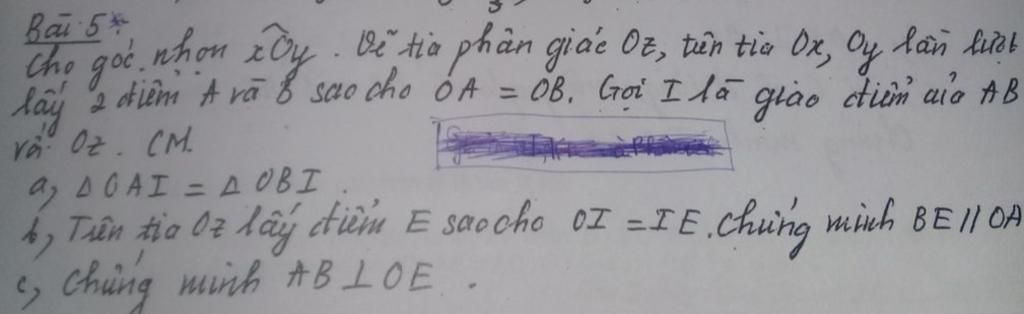 Bài 5*:
Cho góc nhọn xOy. Vẽ tia phân giác Oz, trên tia Ox, Oy lần lượt
lấy 2 điểm A và B sao cho OA = OB. Gọi I là giao điểm của AB
và Oz. CM.
a, Δ OAI = Δ OBI.
b, Trên tia Oz lấy điểm E sao cho OI = IE. Chứng minh BE // OA
c, Chứng minh AB ⊥ OE.